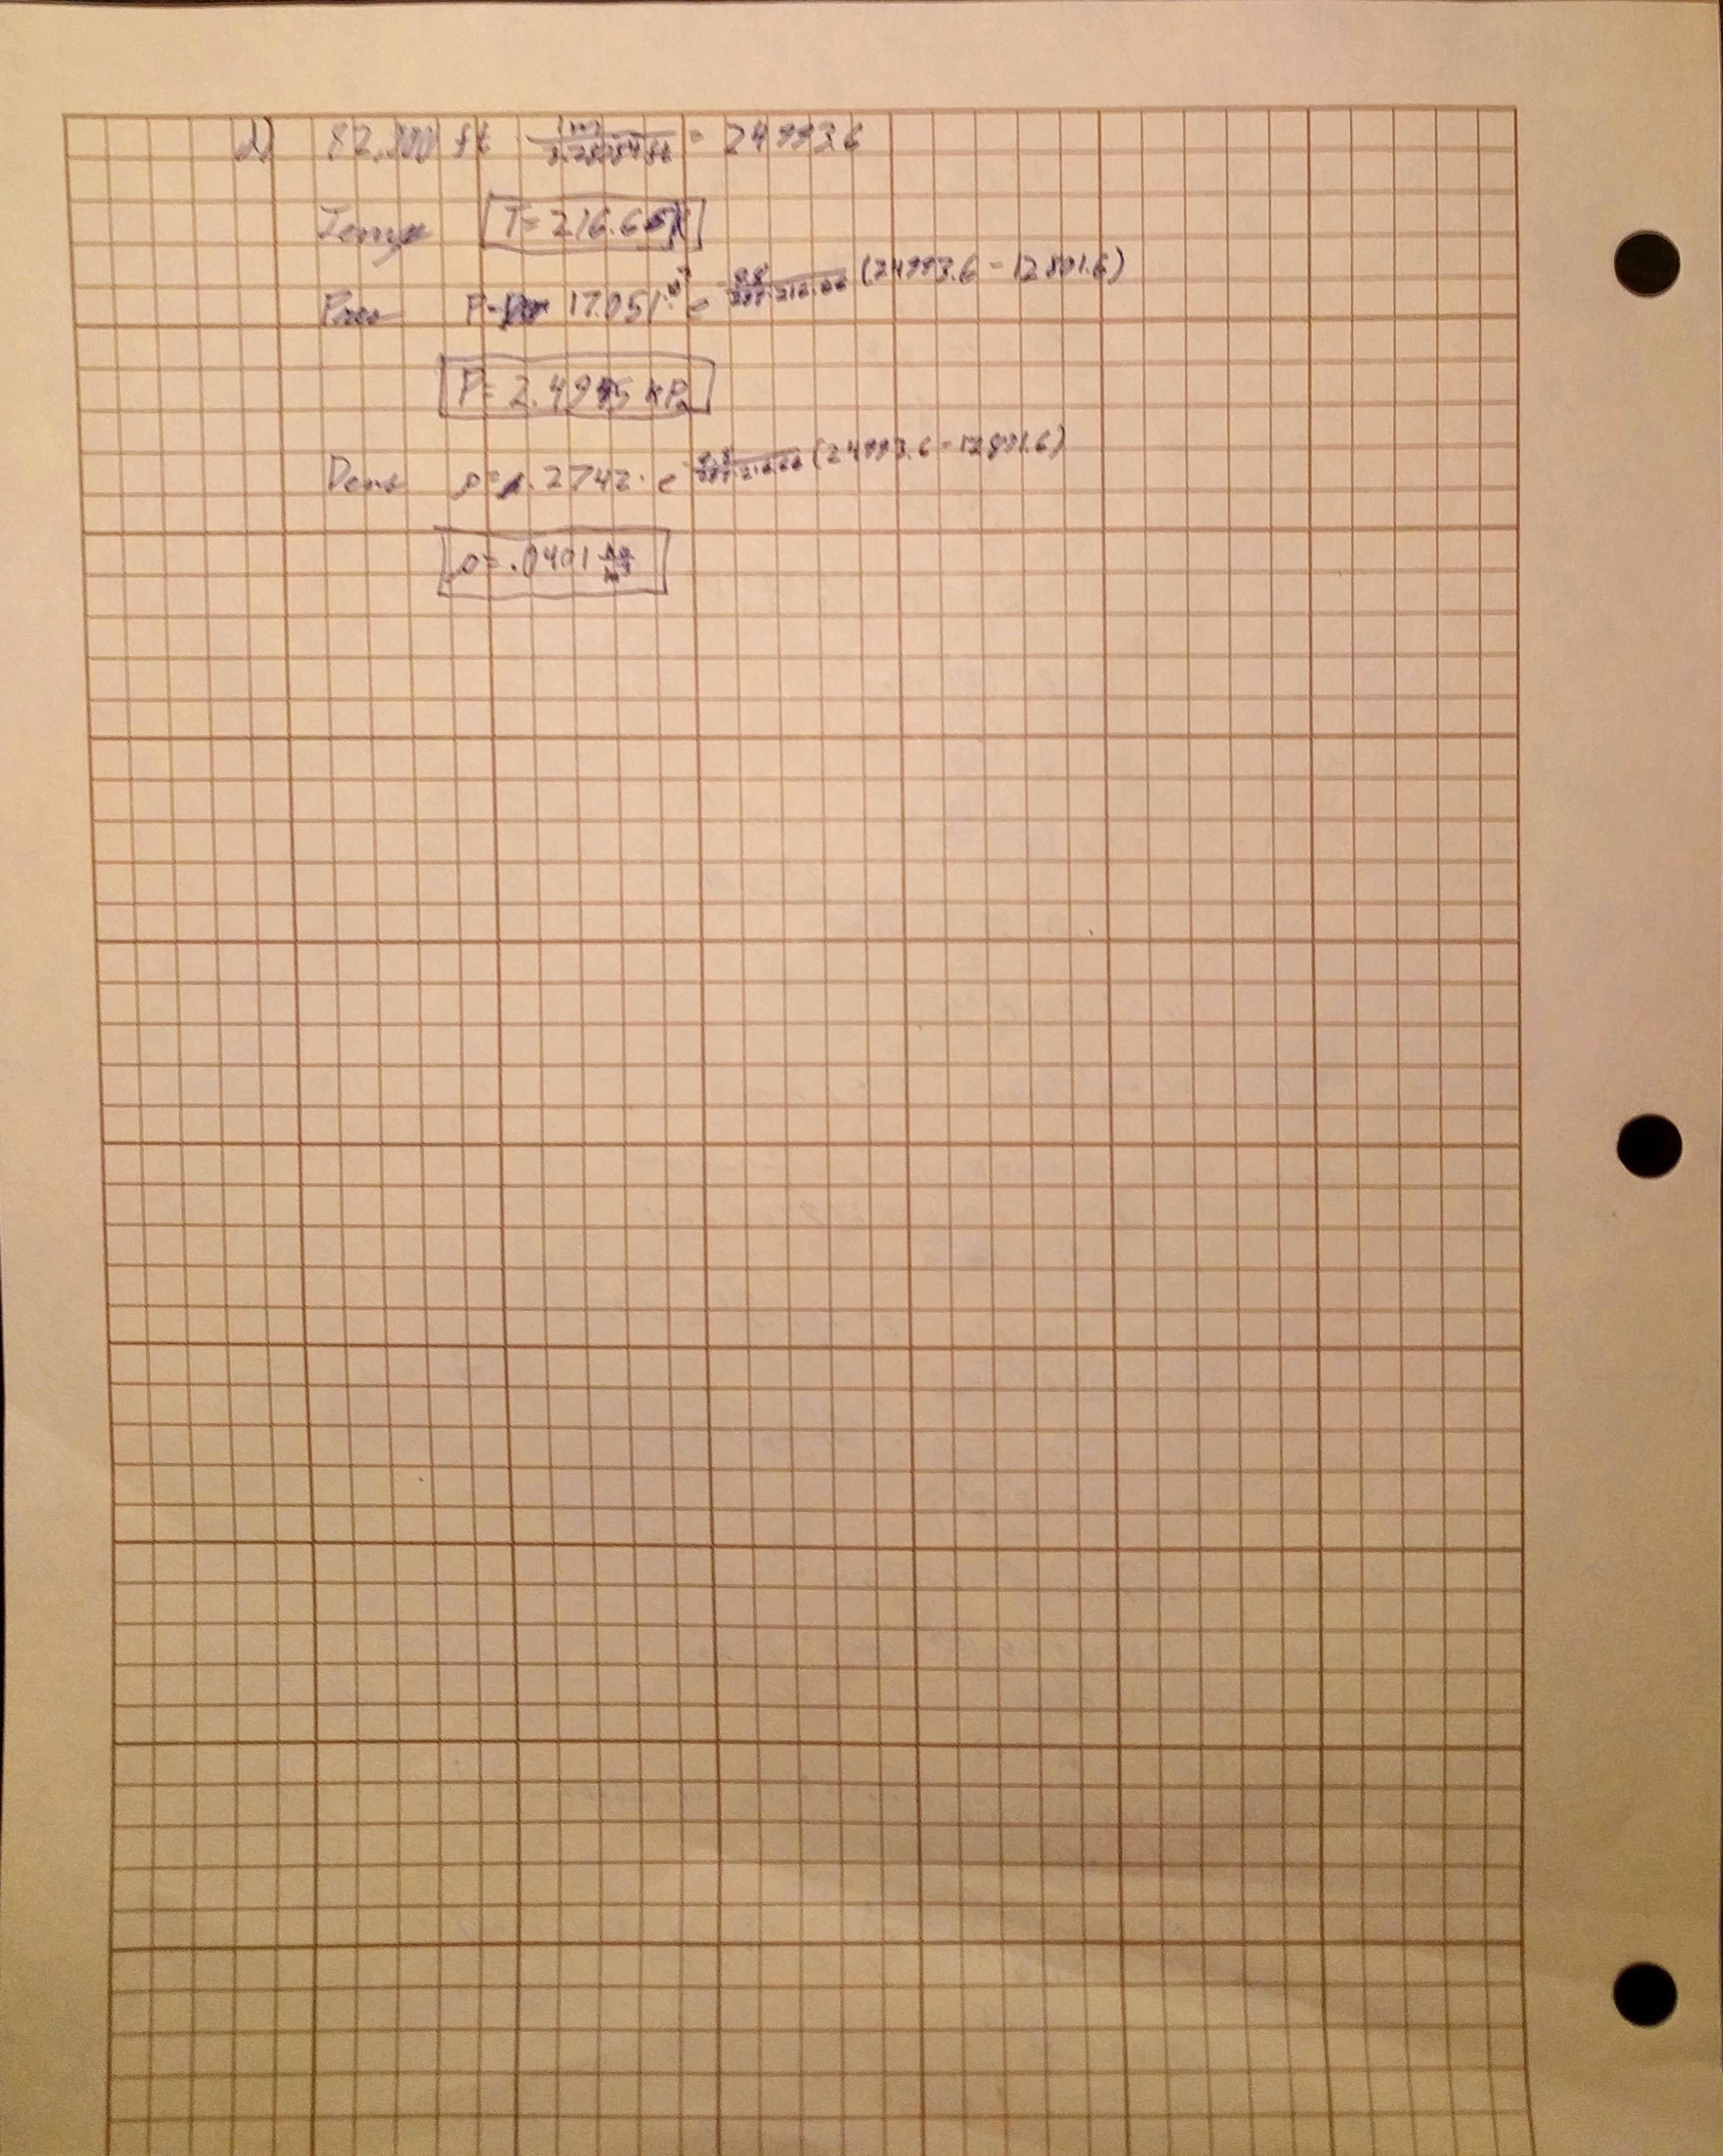 d) 82,000 ft · 1m / 3.28084 ft = 24993.6
Temp T= 216.65K
Pres P= 17.051·10³ e^ -9.8/287·216.66 (24993.6 - 12801.6)
P= 2.4995 kPa
Dens ρ= .2742 · e^ -9.8/287·216.66 (24993.6 - 12801.6)
ρ= .0401 kg/m³